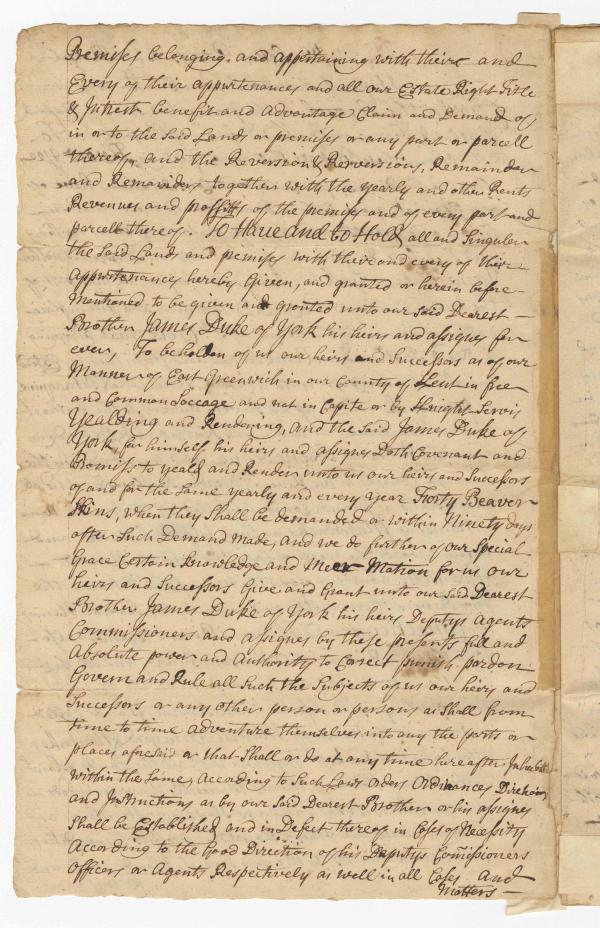 Premises belonging and appertaining with their and
Every of their appurtenances and all our Estate Right Title
& Intrest benefit and advantage Claim and Demand of
in or to the said Lands or premises or any part or parcell
thereof, and the Reversion & Reversions, Remainder
and Remaindrs together with the yearly and other Rents
Revenues and proffitts of the premises and of every part and
parcell thereof. To Have and to Hold, all and Singuler
the Said Lands and premises with their and every of their
Appurtenances hereby Given, and granted or herein before
Mentioned to be given and granted unto our Said Dearest
Brother James Duke of York his heirs and assignes for
ever, To be holden of us our heirs and Successors as of our
Manner of East Greenwich in our County of Kent in free
and Common Soccage and not in Capite or by Knight Servis
Yealding and Rendering, and the Said James Duke of
York for himself his heirs and assignes Doth Covenant and
Promiss to yeald and Render unto us our heirs and Successors
of and for the Same yearly and every year Forty Beaver
Skins, when they Shall be demanded or within Ninety days
after Such Demand made, and we do further of our Special
Grace Certain knowledge and Meer Mation for us our
heirs and Successors Give and Grant unto our Said Dearest
Brother James Duke of York his heirs Deputys Agents
Commissioners and assignes by these presents full and
Absolute power and Authority to Correct punish pardon
Govern and Rule all Such the Subjects of us our heirs and
Successors or any other person or persons as Shall from
time to time adventure themselves into any the parts or
places aforesaid or that Shall or do at any time hereafter Inhabitt
within the Same, According to Such Laws Orders Ordinances Direction
and Instructions as by our Said Dearest Brother or his assignes
Shall be Established and in Defect thereof in Cases of Necessity
According to the Good Direction of his Deputys Comissioners
Officers or Agents Respectively as well in all Cases and
Matters